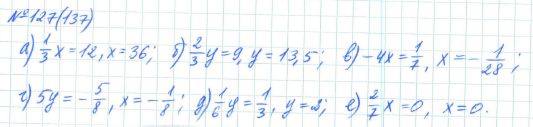 №127(137)
а) 1/3 x = 12, x = 36; б) 2/3 y = 9, y = 13,5; в) -4x = 1/7, x = - 1/28;
г) 5y = - 5/8, x = - 1/8; д) 1/6 y = 1/3, y = 2; е) 2/7 x = 0, x = 0.